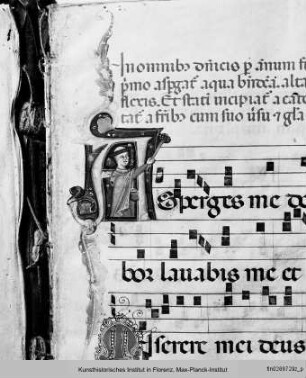 In omnibꝰ dn̄icis p̄ annum fi
p̄mo asp̄gat̄ aqua bn̄dc̄a. alta
flexis. Et statī incipiat̄ a cā
tat̄ a fr̄ibꝰ cum suo v̄su ⁊ gl̄a
Asperges me do
bor lavabis me et
Miserere mei deus
Kunsthistorisches Institut in Florenz, Max-Planck-Institut